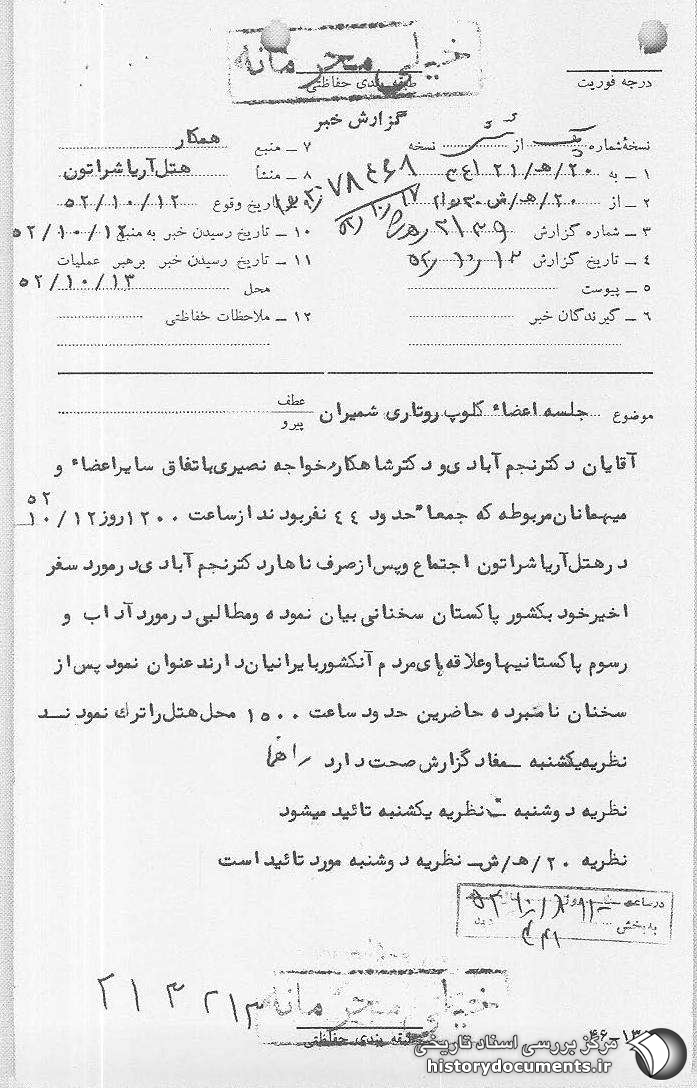 خیلی محرمانه
طبقه بندی حفاظتی
درجه فوریت
گزارش خبر
نسخهٔ شماره یک از شش نسخه
۱ ـ به ۲۰/هـ/۲۱ ۳۴۱
۲ ـ از ۲۰/هـ/ش
۳ ـ شماره گزارش
۴ ـ تاریخ گزارش ۵۲/۱۰/۱۳
۵ ـ پیوست
۶ ـ گیرندگان خبر
۷ ـ منبع همکار
۸ ـ منشأ هتل آریا شراتون
۹ ـ تاریخ وقوع ۵۲/۱۰/۱۲
۱۰ ـ تاریخ رسیدن خبر به منبع ۵۲/۱۰/۱۲
۱۱ ـ تاریخ رسیدن خبر برهبر عملیات
محل ۵۲/۱۰/۱۳
۱۲ ـ ملاحظات حفاظتی
موضوع جلسه اعضاء کلوپ روتاری شمیران
عطف
پیرو
آقایان دکتر نجم آبادی و دکتر شاهکار و خواجه نصیری باتفاق سایر اعضاء و
میهمانان مربوطه که جمعاً حدود ۴۴ نفر بودند از ساعت ۱۲۰۰ روز ۱۰/۱۲/
۵۲
در هتل آریا شراتون اجتماع و پس از صرف ناهار دکتر نجم آبادی در مورد سفر
اخیر خود بکشور پاکستان سخنانی بیان نموده و مطالبی در مورد آداب و
رسوم پاکستانیها و علاقه‌ای مردم آنکشور با ایرانیان دارند عنوان نمود پس از
سخنان نامبرده حاضرین حدود ساعت ۱۵۰۰ محل هتل را ترك نمودنــد
نظریه یکشنبه ـ مفاد گزارش صحت دارد
نظریه دوشنبه ـ نظریه یکشنبه تائید میشود
نظریه ۲۰/هـ/ش ـ نظریه دوشنبه مورد تائید است
در ساعت روز
به بخش ۳۴۱ رسید
۲۱۳ ۲۱۳
خیلی محرمانه
طبقه بندی حفاظتی
۴۶-۱۳
مرکز بررسی اسناد تاریخی
historydocuments.ir